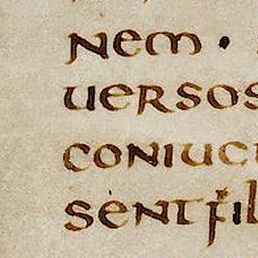 nem ·
uersos
coniuce
sentfil